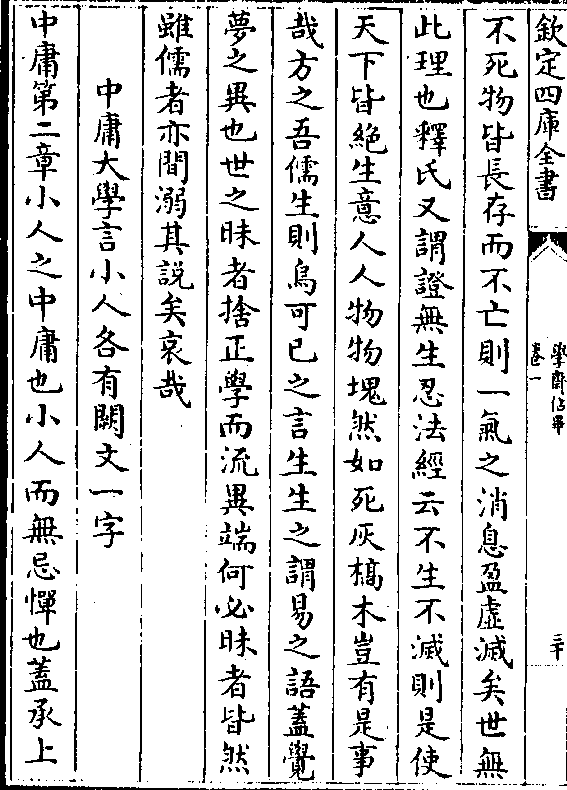 欽定四庫全書
學齋佔畢
卷一
三十
不死物皆長存而不亡則一氣之消息盈虛滅矣世無
此理也釋氏又謂證無生忍法經云不生不滅則是使
天下皆絕生意人人物物塊然如死灰槁木豈有是事
哉方之吾儒生則烏可已之言生生之謂易之語蓋覺
夢之異也世之昧者捨正學而流異端何必昧者皆然
雖儒者亦間溺其説矣哀哉
中庸大學言小人各有闕文一字
中庸第二章小人之中庸也小人而無忌憚也蓋承上